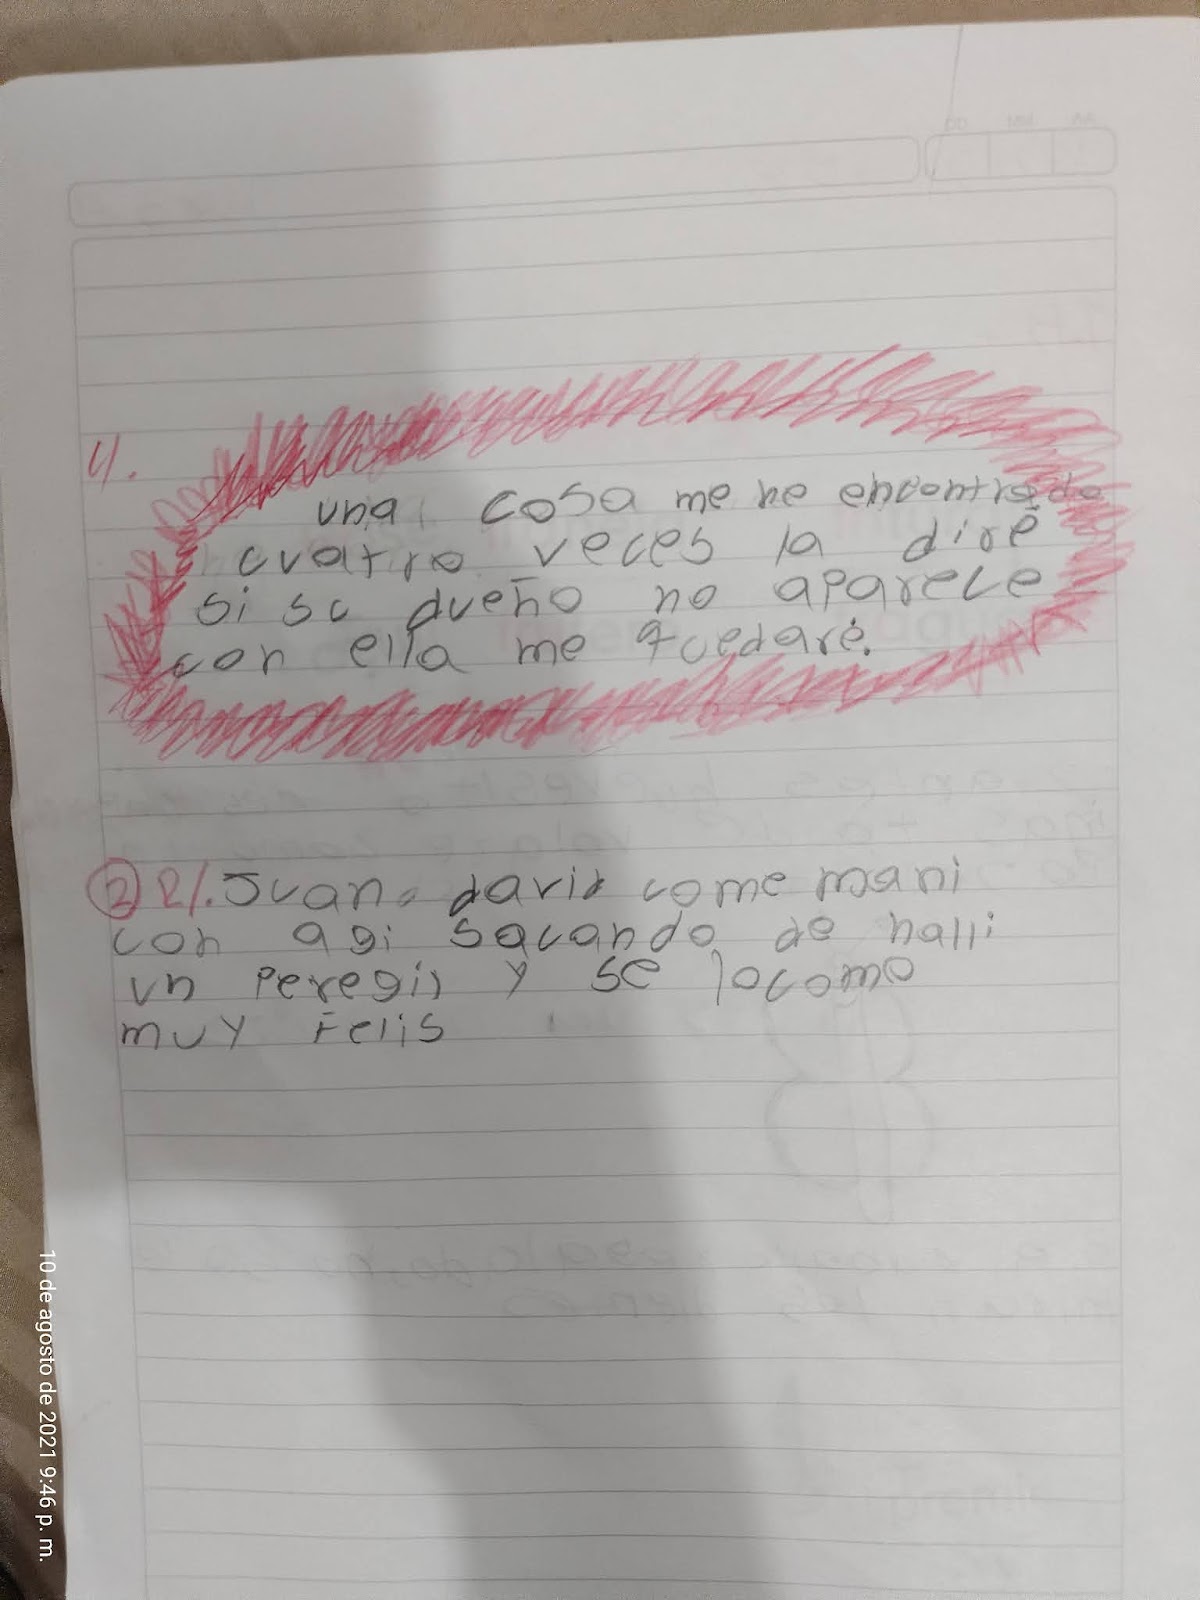 4.
una cosa me he encontrado
cuatro veces la diré
si su dueño no aparece
con ella me quedaré.
2 R/. Juan david come mani
con agi sacando de halli
un peregil y se locome
muy Felis
10 de agosto de 2021 9:46 p. m.